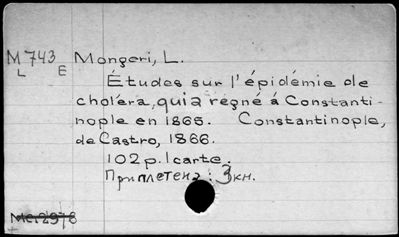 M 743 Mongeri, L.
L E
Études sur l'épidémie de
choléra, qui a régné á Constanti-
nople en 1865. Constantinople,
de Castro, 1866.
102 p. 1 carte.
Приплетена: 3 кн.
Mc. 2978